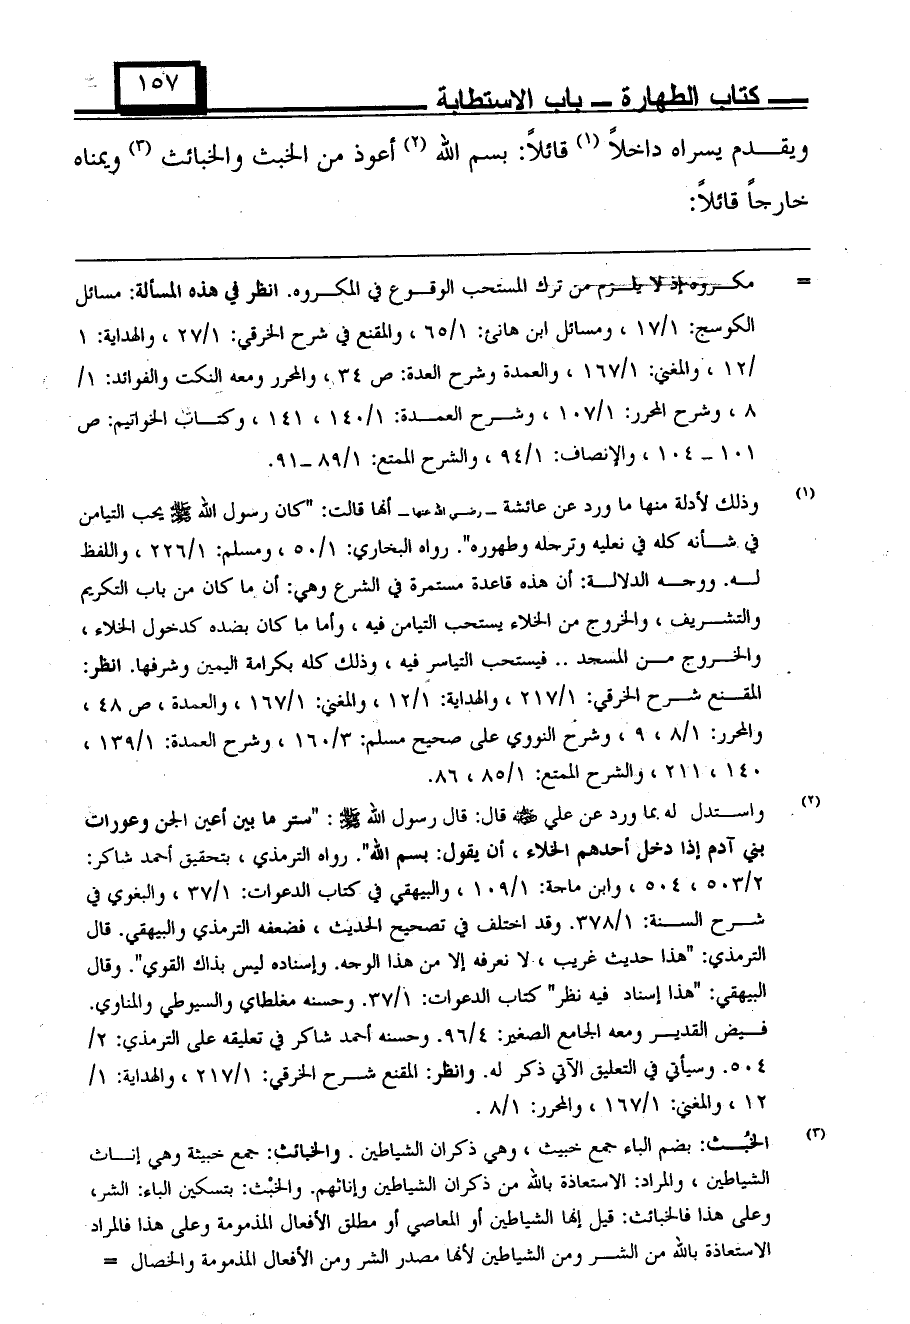 ١٥٧
كتاب الطهارة – باب الاستطابة
ويقدم يسراه داخلاً (١) قائلاً: بسم الله (٢) أعوذ من الخبث والخبائث (٣) ويمناه
خارجاً قائلاً:
= مكروه إذ لا يلزم من ترك المستحب الوقوع في المكروه. انظر في هذه المسألة: مسائل
الكوسج: ١٧/١ ، ومسائل ابن هانئ: ٦٥/١ ، والمقنع في شرح الخرقي: ٢٧/١ ، والهداية: ١
/١٢ ، والمغني: ١٦٧/١ ، والعمدة وشرح العدة: ص ٣٤ ، والمحرر ومعه النكت والفوائد: ١/
٨ ، وشرح المحرر: ١٠٧/١ ، وشرح العمدة: ١٤٠/١ ، ١٤١ ، وكتاب الخواتيم: ص
١٠١ – ١٠٤ ، والإنصاف: ٩٤/١ ، والشرح الممتع: ٨٩/١–٩١.
(١) وذلك لأدلة منها ما ورد عن عائشة – رضي الله عنها – أنها قالت: "كان رسول الله ﷺ يحب التيامن
في شأنه كله في نعليه وترجله وطهوره". رواه البخاري: ٥٠/١ ، ومسلم: ٢٢٦/١ ، واللفظ
له. ووجه الدلالة: أن هذه قاعدة مستمرة في الشرع وهي: أن ما كان من باب التكريم
والتشريف ، والخروج من الخلاء يستحب التيامن فيه ، وأما ما كان بضده كدخول الخلاء ،
والخروج من المسجد .. فيستحب التياسر فيه ، وذلك كله بكرامة اليمين وشرفها. انظر:
المقنع شرح الخرقي: ٢١٧/١ ، والهداية: ١٢/١ ، والمغني: ١٦٧/١ ، والعمدة ، ص ٤٨ ،
والمحرر: ٨/١ ، ٩ ، وشرح النووي على صحيح مسلم: ١٦٠/٣ ، وشرح العمدة: ١٣٩/١ ،
١٤٠ ، ٢١١ ، والشرح الممتع: ٨٥/١ ، ٨٦.
(٢) واستدل له بما ورد عن علي ﵁ قال: قال رسول الله ﷺ : "ستر ما بين أعين الجن وعورات
بني آدم إذا دخل أحدهم الخلاء ، أن يقول: بسم الله". رواه الترمذي ، بتحقيق أحمد شاكر:
٥٠٣/٢ ، ٥٠٤ ، وابن ماجة: ١٠٩/١ ، والبيهقي في كتاب الدعوات: ٣٧/١ ، والبغوي في
شرح السنة: ٣٧٨/١. وقد اختلف في تصحيح الحديث ، فضعفه الترمذي والبيهقي. قال
الترمذي: "هذا حديث غريب ، لا نعرفه إلا من هذا الوجه. وإسناده ليس بذاك القوي". وقال
البيهقي: "هذا إسناد فيه نظر" كتاب الدعوات: ٣٧/١. وحسنه مغلطاي والسيوطي والمناوي.
فيض القدير ومعه الجامع الصغير: ٩٦/٤. وحسنه أحمد شاكر في تعليقه على الترمذي: ٢/
٥٠٤. وسيأتي في التعليق الآتي ذكر له. وانظر: المقنع شرح الخرقي: ٢١٧/١ ، والهداية: ١/
١٢ ، والمغني: ١٦٧/١ ، والمحرر: ٨/١ .
(٣) الخُبُث: بضم الباء جمع خبيث ، وهي ذكران الشياطين . والخبائث: جمع خبيثة وهي إناث
الشياطين ، والمراد: الاستعاذة بالله من ذكران الشياطين وإناثهم. والخبْث: بتسكين الباء: الشر،
وعلى هذا فالخبائث: قيل إنها الشياطين أو المعاصي أو مطلق الأفعال المذمومة وعلى هذا فالمراد
الاستعاذة بالله من الشر ومن الشياطين لأنها مصدر الشر ومن الأفعال المذمومة والخصال =